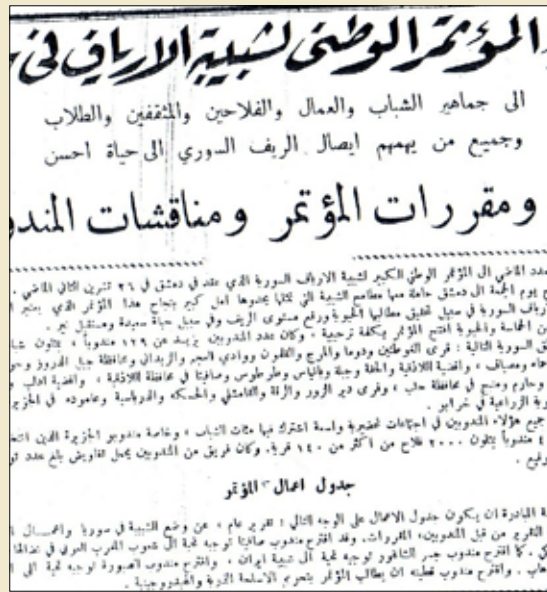 المؤتمر الوطني لشبيبة الارياف في
الى جماهير الشباب والعمال والفلاحين والمثقفين والطلاب
وجميع من يهمهم ايصال الريف السوري الى حياة احسن
ومقررات المؤتمر ومناقشات
الماضي الى المؤتمر الوطني الكبير لشبيبة الارياف السورية الذي عقد في دمشق في ٢٦ تشرين الثاني الماضي
يوم الجمعة الى دمشق حاملة معها مطامح الشبيبة التي تمثلها يحدوها امل كبير بنجاح هذا المؤتمر الذي يعتبر
السورية في سبيل تحقيق مطالبها الحيوية ورفع مستوى الريف وفي سبيل حياة سعيدة ومستقبل نير .
من الحماسة والحيوية افتتح المؤتمر بكلمة ترحيبية ، وكان عدد المندوبين يزيد عن ١٢٩ مندوباً ، يمثلون
السورية التالية : قرى الغوطتين ودوما والمرج والقلمون ووادي العجم والزبداني ومحافظة جبل الدروز
ومصياف ، واقضية اللاذقية والحفة وجبلة وبانياس وطرطوس وصافيتا في محافظة اللاذقية ، واقضية ادلب
وحارم ومنبج في محافظة حلب ، وقرى دير الزور والرقة والقامشلي والحسكة والدرباسية وعاموده في
الزراعية في خرابو .
جميع هؤلاء المندوبين في اجتماعات تحضيرية واسعة اشترك فيها مئات الشباب ، وخاصة مندوبو الجزيرة الذين
مندوباً يمثلون ٢٠٠٠ فلاح من اكثر من ١٤٠ قرية. وكان فريق من المندوبين يحمل تفاويض بلغ عدد
جدول اعمال المؤتمر
المبادرة ان يكون جدول الاعمال على الوجه التالي : تقرير عام ، عن وضع الشبيبة في سوريا
التقرير من قبل المندوبين، المقررات. وقد اقترح مندوب صافيتا توجيه تحية الى شعوب المغرب العربي في
كما اقترح مندوب جسر الشاغور توجيه تحية الى شبيبة ايران ، واقترح مندوب توجيه تحية الى
واقترح مندوب ان يطالب المؤتمر بتحريم الاسلحة الذرية والهيدروجينية .